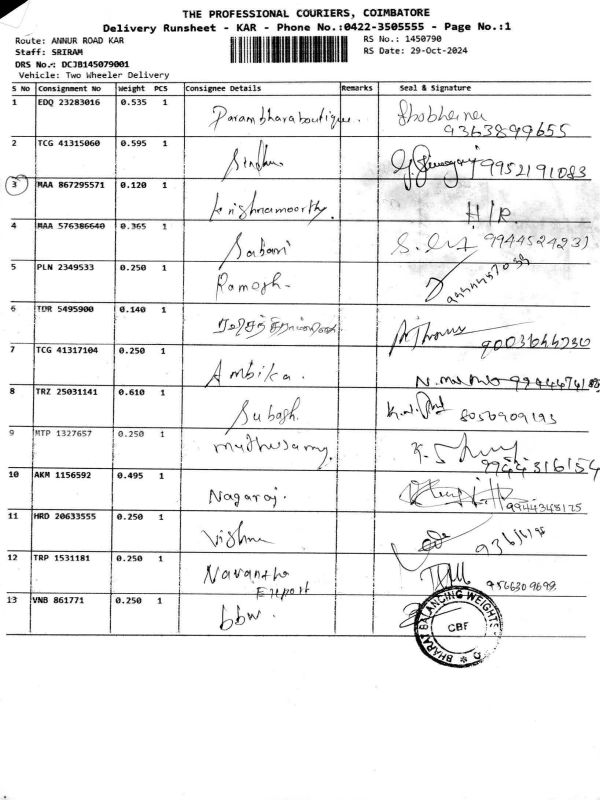 THE PROFESSIONAL COURIERS, COIMBATORE
Delivery Runsheet - KAR - Phone No.:0422-3505555 - Page No.:1
Route: ANNUR ROAD KAR RS No.: 1450790
Staff: SRIRAM RS Date: 29-Oct-2024
DRS No.: DCJB145079001
Vehicle: Two Wheeler Delivery
S No Consignment No Weight PCS Consignee Details Remarks Seal & Signature
1 EDQ 23283016 0.535 1 Parambharaboutique. Shobheina
9363899655
2 TCG 41315060 0.595 1 Sindhu 9952191083
3 MAA 867295571 0.120 1 krishnamoorthy. H/R.
4 MAA 576386640 0.365 1 Sabari 9944524231
5 PLN 2349533 0.250 1 Ramesh.
6 TUR 5495900 0.140 1
7 TCG 41317104 0.250 1 Ambika.
8 TRZ 25031141 0.610 1 Subash. 8050909193
9 MTP 1327657 0.250 1 muthusamy.
9944316154
10 AKM 1156592 0.495 1 Nagaraj. 9944348175
11 HRD 20633555 0.250 1 Vishnu
12 TRP 1531181 0.250 1 9566309698
Export
13 VNB 861771 0.250 1 bbw.
BHARAT BALANCING WEIGHTS
CBF